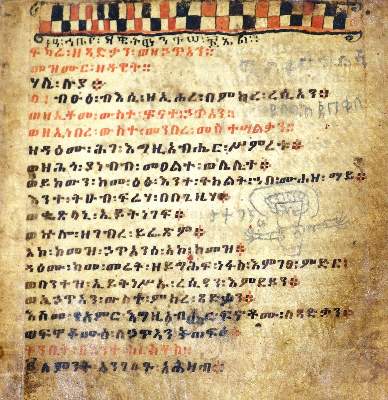 ፍካሬ፡ዘጻድቃን፡ወዘኃጥኣን።
መዝሙር፡ዘዳዊት።
ሃሌ፡ሉያ፡
ብፁዕ፡ብእሲ፡ዘኢሖረ፡በምክረ፡ረሲዓን፡
ወዘኢቆመ፡ውስተ፡ፍኖተ፡ኃጥኣን፡
ወዘኢነበረ፡ውስተ፡መንበረ፡መስተሣልቃን፡
ዘዳዕሙ፡ሕገ፡እግዚአብሔር፡ሥምረቱ፡
ወዘሕጎ፡ያነብብ፡መዐልተ፡ወሌሊተ፡
ወይከውን፡ከመ፡ዕፅ፡እንተ፡ትክልት፡ኀበ፡ሙሐዘ፡ማይ
እንተ፡ትሁብ፡ፍሬሃ፡በበጊዜሃ፡
ወቈጽላኒ፡ኢይትነገፍ፡
ወኵሎ፡ዘገብረ፡ይፌጽም፡
አኮ፡ከመዝ፡ኃጥኣንሰ፡አኮ፡ከመዝ፡
ዳዕሙ፡ከመ፡መሬት፡ዘይግሕፍ፡ነፋስ፡እምገጸ፡ምድር፡
ወበእንተዝ፡ኢይትነሥኡ፡ረሲዓን፡እምደይን፡
ወኢኃጥኣን፡ውስተ፡ምክረ፡ጻድቃን፡
እስመ፡ያአምር፡እግዚአብሔር፡ፍኖቶሙ፡ለጻድቃን፡
ወፍኖቶሙሰ፡ለኃጥኣን፡ትጠፍእ፡
ትንቢት፡በእንተ፡ክርስቶስ፡
ለምንት፡አንገለጉ፡አሕዛብ፡